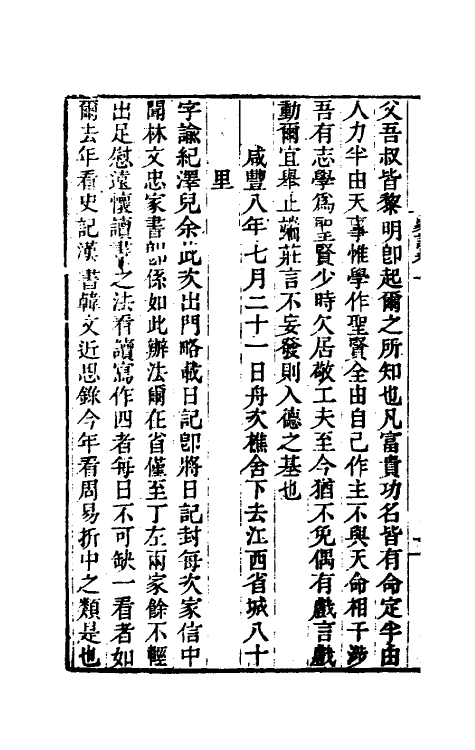 父吾叔皆黎明卽起爾之所知也凡富貴功名皆有命定半由
人力半由天事惟學作聖賢全由自己作主不與天命相干涉
吾有志學爲聖賢少時欠居敬工夫至今猶不免偶有戲言戲
動爾宜舉止端莊言不妄發則入德之基也
咸豐八年七月二十一日舟次樵舍下去江西省城八十
里
字諭紀澤兒余此次出門略載日記卽將日記封每次家信中
聞林文忠家書卽係如此辦法爾在省僅至丁左兩家餘不輕
出足慰遠懷讀書之法看讀寫作四者每日不可缺一看者如
爾去年看史記漢書韓文近思錄今年看周易折中之類是也